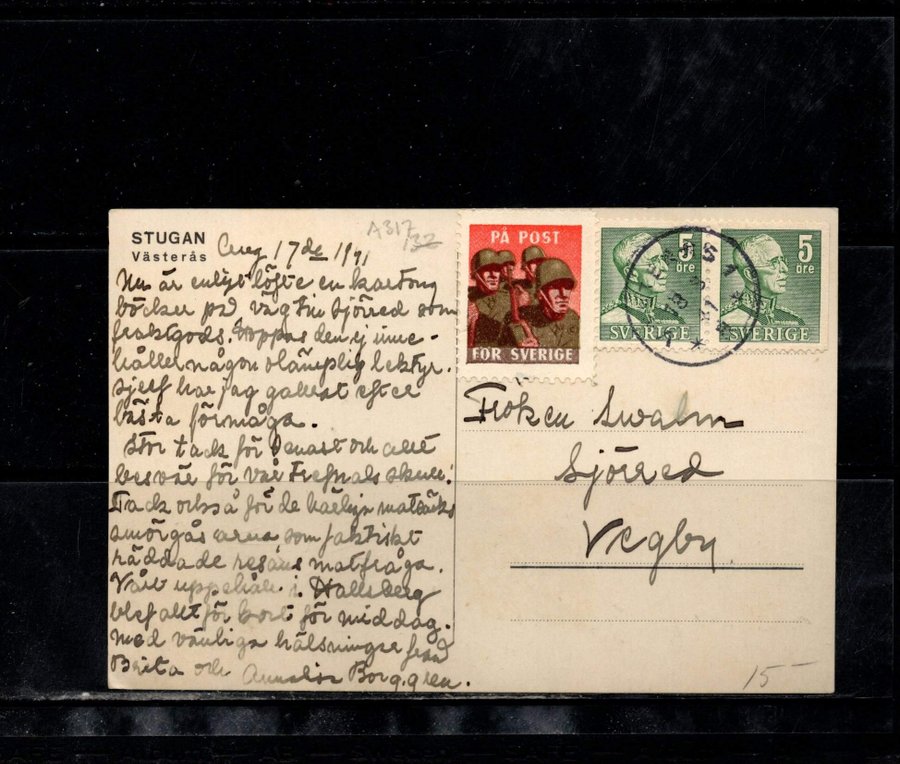 STUGAN
Västerås
Aug 17de 1941
A317
/32
Nu är enligt löfte en kartong
böcker på väg till Sjörred som
fraktgods. Hoppas den ej inne-
håller någon olämplig lektyr.
Själf har jag gallrat efter
bästa förmåga.
Stor tack för senast och allt
besvär för vår skull.
Tack också för de härliga matsäcks
smörgåsarna som faktiskt
räddade resans matfråga.
Vårt uppehåll i Hallsberg
blef allt för kort för middag.
med vänliga hälsningar från
Brita och Annalisa Borggren.
PÅ POST
FÖR SVERIGE
5 öre
SVERIGE
5 öre
SVERIGE
Fröken Swalm
Sjörred
Vegby
15-